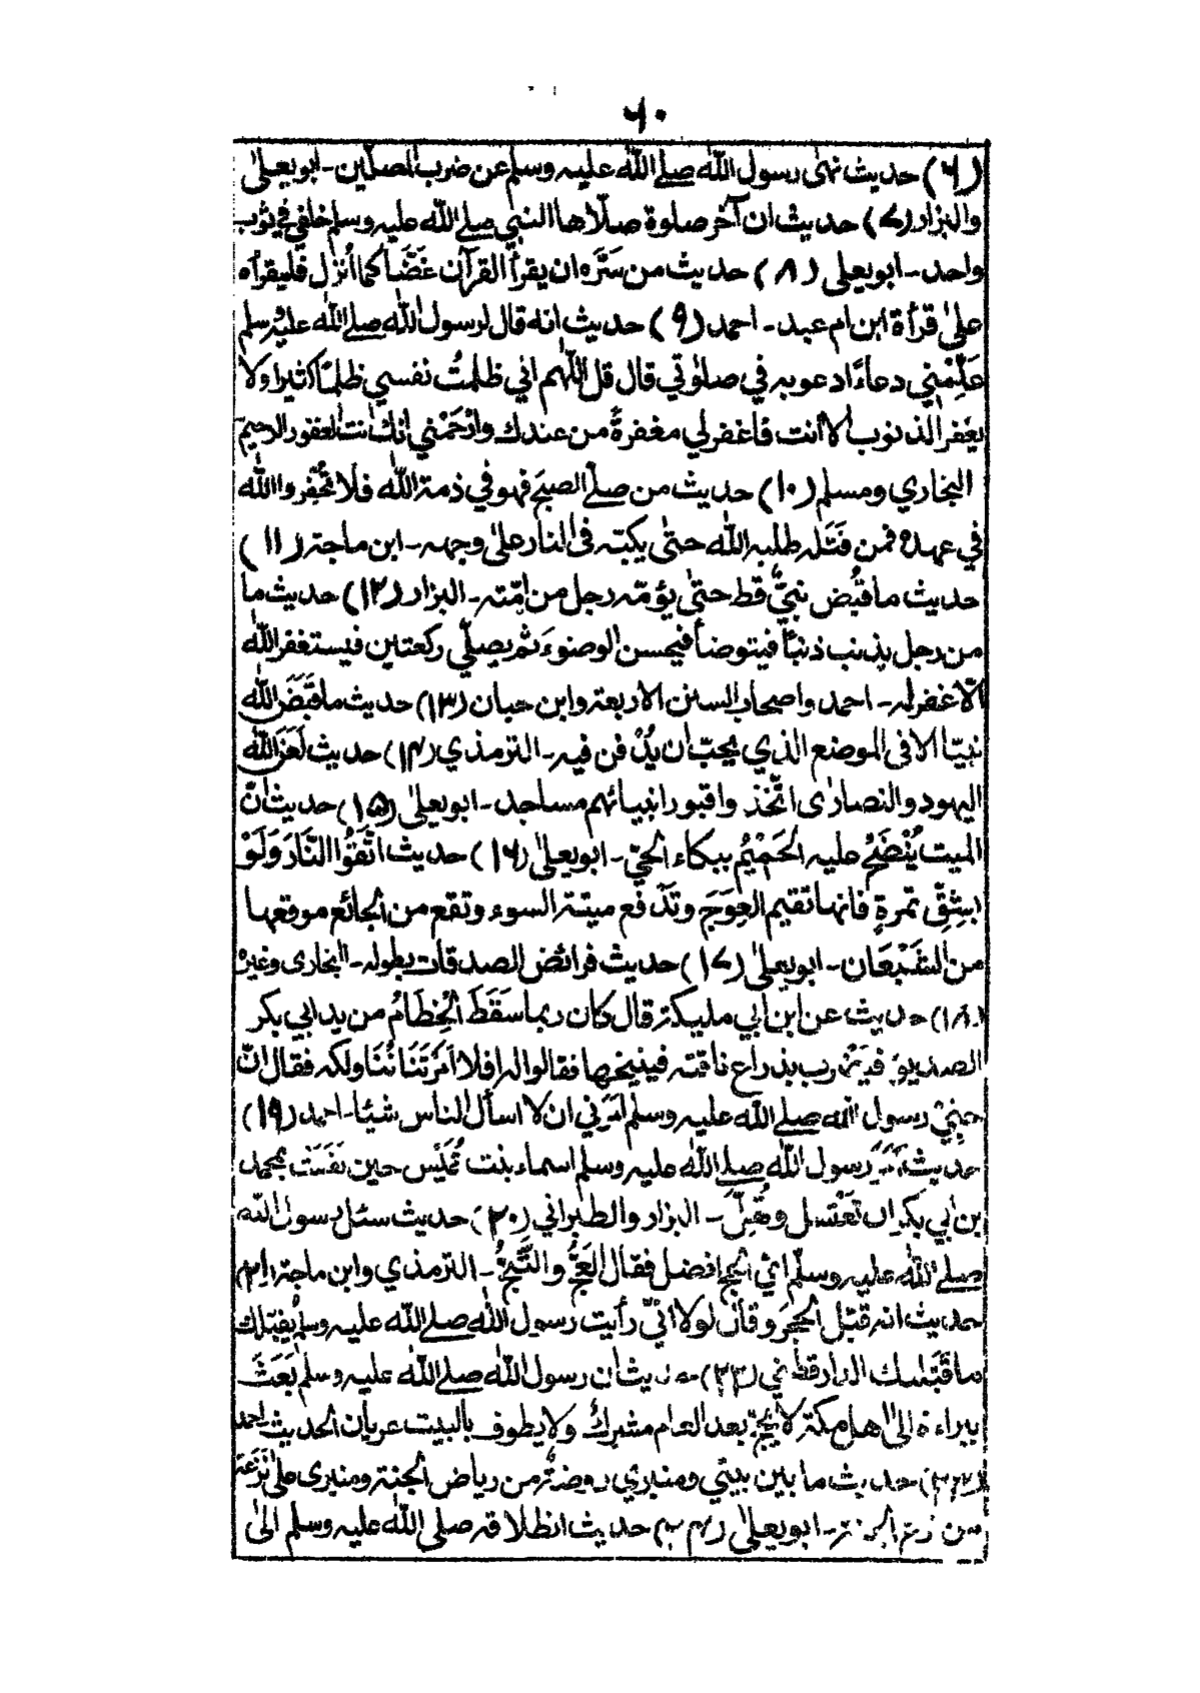 ۶۰
(۶) حديث نهى رسول الله صلى الله عليه وسلم عن ضرب المصلين - ابو يعلى
والبزار (۷) حديث ان آخر صلوة صلاها النبي صلى الله عليه وسلم خلفي في ثوب
واحد - ابو يعلى (۸) حديث من سَرَّه ان يقرأ القرآن غَضًّا كما اُنزل فليقرأه
على قرأة ابن ام عبد - احمد (۹) حديث انه قال لرسول الله صلى الله عليه وسلم
عَلِّمْنِي دعاءً ادعو به في صلوتي قال قل اللهم اني ظلمتُ نفسي ظلمًا كثيرا ولا
يغفر الذنوب الا انت فاغفر لي مغفرةً من عندك وارْحَمْني انك انت الغفور الرحيم
البخاري ومسلم (۱۰) حديث من صلى الصبح فهو في ذمة الله فلا تُخْفِروا الله
في عهده فمن قتله طلبه الله حتى يكبّه فى النار على وجهه - ابن ماجة (۱۱)
حديث ما قُبض نبيٌّ قط حتى يؤمّه رجل من امّته - البزار (۱۲) حديث ما
من رجل يذنب ذنبًا فيتوضأ فيحسن الوضوءَ ثم يصلّي ركعتين فيستغفر الله
الّا غفر له - احمد واصحاب السنن الاربعة وابن حبان (۱۳) حديث ما قَبَضَ الله
نبيّا الا فى الموضع الذي يحبّ ان يُدْفن فيه - الترمذي (۱۴) حديث لَعَنَ الله
اليهود والنصارى اتّخذوا قبور انبيائهم مساجد - ابو يعلى (۱۵) حديث انّ
الميت يُنْضَحُ عليه الحَمْيُم ببكاء الحيّ - ابو يعلى (۱۶) حديث اتّقُوا النَّارَ وَلَوْ
بِشِقِّ تمرةٍ فانها تقيم العِوَجَ وتَدْفع ميتة السوء وتقع من الجائع موقعها
من الشَّبْعَان - ابو يعلى (۱۷) حديث فرائض الصدقات بطوله - البخارى وغيره
(۱۸) حديث عن ابن ابي مليكة قال كان ربما سَقَطَ الْخِطَامُ من يد ابي بكر
الصديق فيضرب بذراع ناقته فينيخها فقالوا له افلا اَمَرْتَنَا نُنَاولكه فقال انّ
حِبِّيْ رسول الله صلى الله عليه وسلم اَمَرَني ان لا اسأل الناس شيئا - احمد (۱۹)
حديث اَمَرَ رسول الله صلى الله عليه وسلم اسماء بنت عُمَيْس حين نفست بمحمد
بن ابي بكر ان تَغْتسل وتُهِلَّ - البزار والطبراني (۲۰) حديث سئل رسول الله
صلى الله عليه وسلّم ايّ الحج افضل فقال العَجُّ والثَّجُّ - الترمذي وابن ماجة (۲۱)
حديث انه قَبَّل الحَجَرَ وقال لولا انّيْ رأيت رسول الله صلى الله عليه وسلم يُقبّلك
ما قَبَّلتك الدارقطني (۲۲) حديث ان رسول الله صلى الله عليه وسلم بَعَثَ
ببراءة الى اهل مكة لا يحجّ بعد العام مشركٌ ولا يطوف بالبيت عريان الحديث احمد
(۲۳) حديث ما بين بيتي ومنبري روضةٌ من رياض الجنة ومنبرى على تُرْعَة
من ترع الجنة - ابو يعلى (۲۴) حديث انطلاقه صلى الله عليه وسلم الى